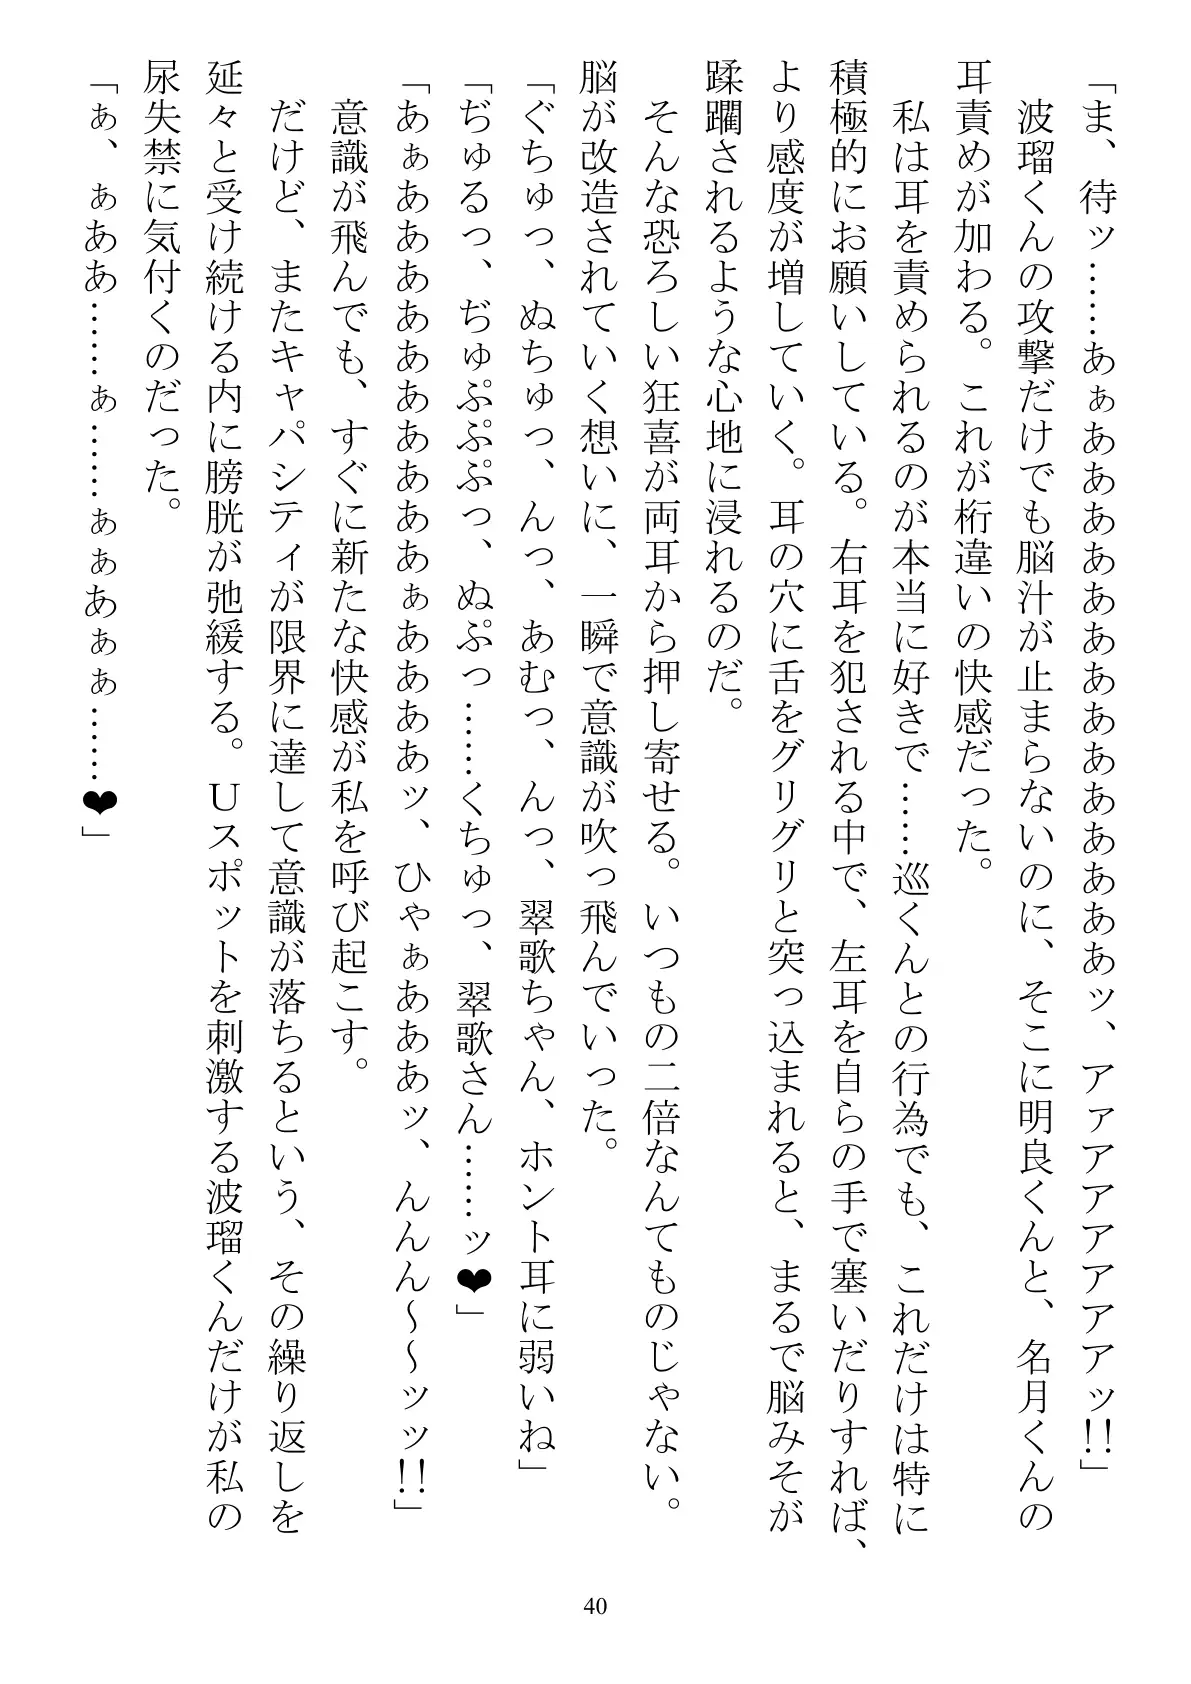 「ま、待ッ……あぁあああああああああああああッ、アァアアアアアアッ!!」
　波瑠くんの攻撃だけでも脳汁が止まらないのに、そこに明良くんと、名月くんの
耳責めが加わる。これが桁違いの快感だった。
　私は耳を責められるのが本当に好きで……巡くんとの行為でも、これだけは特に
積極的にお願いしている。右耳を犯される中で、左耳を自らの手で塞いだりすれば、
より感度が増していく。耳の穴に舌をグリグリと突っ込まれると、まるで脳みそが
蹂躙されるような心地に浸れるのだ。
　そんな恐ろしい狂喜が両耳から押し寄せる。いつもの二倍なんてものじゃない。
脳が改造されていく想いに、一瞬で意識が吹っ飛んでいった。
「ぐちゅっ、ぬちゅっ、んっ、あむっ、んっ、翠歌ちゃん、ホント耳に弱いね」
「ぢゅるっ、ぢゅぷぷぷっ、ぬぷっ……くちゅっ、翠歌さん……ッ❤」
「あぁあああああああああああぁああああッ、ひゃぁあああッ、んんん～～ッッ!!」
　意識が飛んでも、すぐに新たな快感が私を呼び起こす。
　だけど、またキャパシティが限界に達して意識が落ちるという、その繰り返しを
延々と受け続ける内に膀胱が弛緩する。Uスポットを刺激する波瑠くんだけが私の
尿失禁に気付くのだった。
「ぁ、ぁああ……ぁ……ぁぁあぁぁ……❤」
40